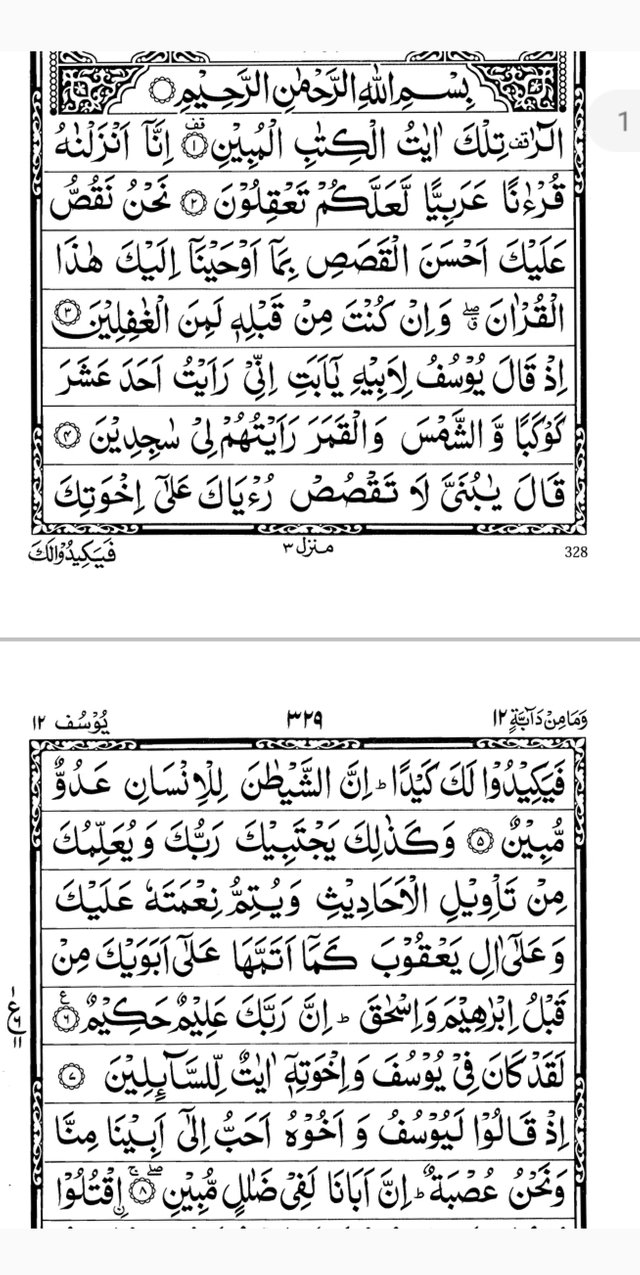 بِسْمِ اللّٰهِ الرَّحْمٰنِ الرَّحِيْمِ
1
الٓرٰ ۟ قف تِلْكَ اٰيٰتُ الْكِتٰبِ الْمُبِيْنِ ۟ قف ١ اِنَّاۤ اَنْزَلْنٰهُ
قُرْءٰنًا عَرَبِيًّا لَّعَلَّكُمْ تَعْقِلُوْنَ ٢ نَحْنُ نَقُصُّ
عَلَيْكَ اَحْسَنَ الْقَصَصِ بِمَاۤ اَوْحَيْنَاۤ اِلَيْكَ هٰذَا
الْقُرْاٰنَ ۖ ق وَاِنْ كُنْتَ مِنْ قَبْلِهٖ لَمِنَ الْغٰفِلِيْنَ ٣
اِذْ قَالَ يُوْسُفُ لِاَبِيْهِ يٰۤاَبَتِ اِنِّيْ رَاَيْتُ اَحَدَ عَشَرَ
كَوْكَبًا وَّالشَّمْسَ وَالْقَمَرَ رَاَيْتُهُمْ لِيْ سٰجِدِيْنَ ٤
قَالَ يٰبُنَيَّ لَا تَقْصُصْ رُءْيَاكَ عَلٰۤى اِخْوَتِكَ
328 منزل ٣ فَيَكِيْدُوْا لَكَ
وَمَا مِنْ دَآبَّةٍ ١٢ ٣٢٩ يُوْسُف ١٢
فَيَكِيْدُوْا لَكَ كَيْدًا ؕ اِنَّ الشَّيْطٰنَ لِلْاِنْسَانِ عَدُوٌّ
مُّبِيْنٌ ٥ وَكَذٰلِكَ يَجْتَبِيْكَ رَبُّكَ وَيُعَلِّمُكَ
مِنْ تَاْوِيْلِ الْاَحَادِيْثِ وَيُتِمُّ نِعْمَتَهٗ عَلَيْكَ
وَعَلٰۤى اٰلِ يَعْقُوْبَ كَمَاۤ اَتَمَّهَا عَلٰۤى اَبَوَيْكَ مِنْ
قَبْلُ اِبْرٰهِيْمَ وَاِسْحٰقَ ؕ اِنَّ رَبَّكَ عَلِيْمٌ حَكِيْمٌ ٦ ع
١ ع ٦ ١١
لَقَدْ كَانَ فِيْ يُوْسُفَ وَاِخْوَتِهٖۤ اٰيٰتٌ لِّلسَّآئِلِيْنَ ٧
اِذْ قَالُوْا لَيُوْسُفُ وَاَخُوْهُ اَحَبُّ اِلٰۤى اَبِيْنَا مِنَّا
وَنَحْنُ عُصْبَةٌ ؕ اِنَّ اَبَانَا لَفِيْ ضَلٰلٍ مُّبِيْنِ ۖ ۚ ٨ اۨقْتُلُوْا